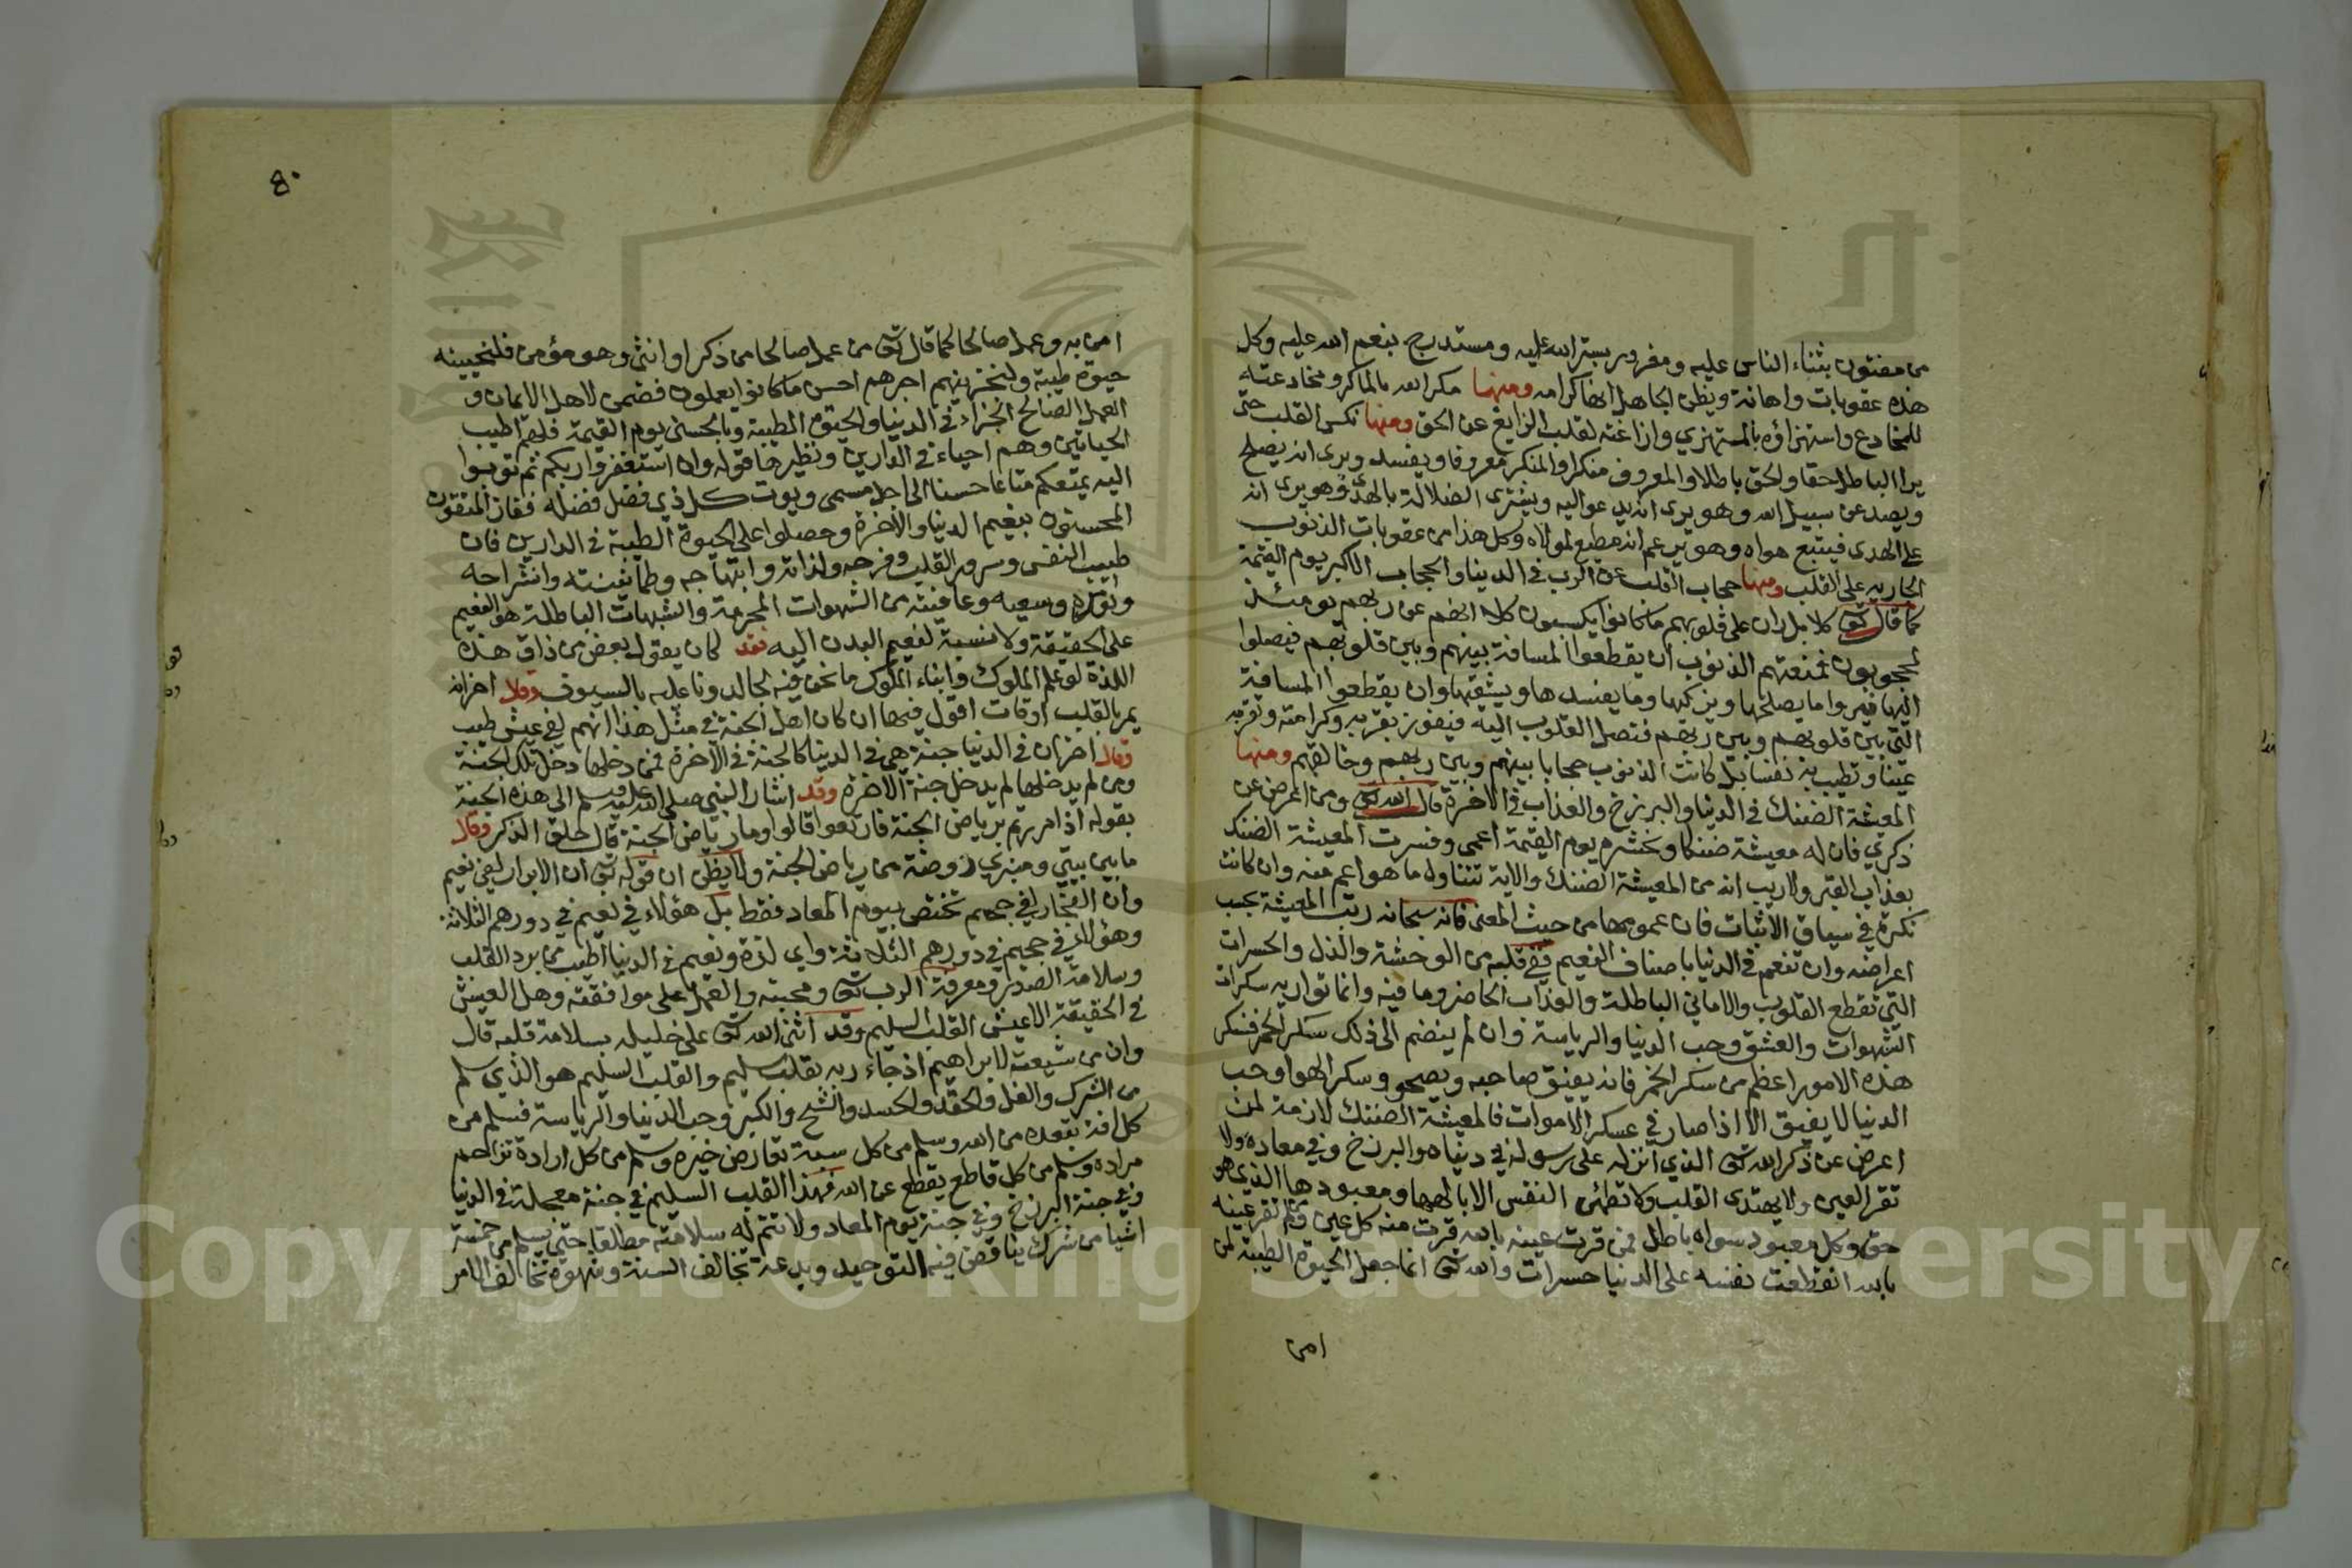 من مفتون بثناء الناس عليه ومغرور بستر الله عليه ومستدرج بنعم الله عليه وكل
هذه عقوبات واهانة ويظن الجاهل انها كرامه ومنها مكر الله بالماكر ومخادعته
للمخادع واستهزاؤه بالمستهزي وازاغته لقلب الزايغ عن الحق ومنها نكس القلب حتى
يرا الباطل حقا والحق باطلا والمعروف منكرا والمنكر معروفا ويفسد ويرى انه يصلح
ويصد عن سبيل الله وهو يرى انه يدعو اليه ويشترى الضلالة بالهدى وهو يرى انه
على الهدى فيتبع هواه وهو يزعم انه مطيع لمولاه وكل هذا من عقوبات الذنوب
الجاريه على القلب ومنها حجاب القلب عن الرب في الدنيا والحجاب الاكبر يوم القيمة
كما قال تعالى كلا بل ران على قلوبهم ما كانوا يكسبون كلا انهم عن ربهم يومئذ
لمحجوبون فمنعتهم الذنوب ان يقطعوا المسافة بينهم وبين قلوبهم فيصلوا
اليها فيروا ما يصلحها ويزكيها وما يفسدها ويشقيها وان يقطعوا المسافة
التي بين قلوبهم وبين ربهم فتصل القلوب اليه فيفوز بقربه وكرامته وتقر به
عينا وتطيب به نفسا بل كانت الذنوب حجابا بينهم وبين ربهم وخالقهم ومنها
المعيشة الضنك في الدنيا والبرزخ والعذاب في الاخرة قال الله تعالى ومن اعرض عن
ذكري فان له معيشة ضنكا ونحشره يوم القيمة اعمى وفسرت المعيشة الضنك
بعذاب القبر ولا ريب انه من المعيشة الضنك والاية تتناول ما هو اعم منه وان كانت
نكرة في سياق الاثبات فان عمومها من حيث المعنى فانه سبحانه رتب المعيشة بحسب
اعراضه وان تنعم في الدنيا باصناف النعيم ففي قلبه من الوحشة والذل والحسرات
التي تقطع القلوب والاماني الباطلة والعذاب الحاضر وما فيه وانما تواريه سكرات
الشهوات والعشق وحب الدنيا والرياسة وان لم ينضم الى ذلك سكر الخمر فسكر
هذه الامور اعظم من سكر الخمر فانه يفيق صاحبه ويصحو وسكر الهوا وحب
الدنيا لا يفيق الا اذا صار في عسكر الاموات فالمعيشة الضنك لازمة لمن
اعرض عن ذكر الله تعالى الذي انزله على رسوله في دنياه والبرزخ وفي معاده ولا
تقر العين ولا يهتدى القلب ولا تطمئن النفس الا بالهها ومعبودها الذي هو
حق وكل معبود سواه باطل فمن قرت عينه بالله قرت منه كل عين ومن لم تقر عينه
بالله انقطعت نفسه على الدنيا حسرات والله تعالى انما جعل الحيوة الطيبة لمن
امن
٤٠
امن به وعمل صالحا كما قال تعالى من عمل صالحا من ذكر او انثى وهو مؤمن فلنحيينه
حيوة طيبة ولنجزينهم اجرهم احسن ما كانوا يعملون فضمن لاهل الايمان و
العمل الصالح الجزاء في الدنيا والحيوة الطيبة وبالحسنى يوم القيمة فلهم اطيب
الحياتين وهم احياء في الدارين ونظيرها قوله وان استغفروا ربكم ثم توبوا
اليه يمتعكم متاعا حسنا الى اجل مسمى ويوت كل ذي فضل فضله ففاز المتقون
المحسنون بنعيم الدنيا والاخرة وحصلوا على الحيوة الطيبة في الدارين فان
طيب النفس وسرور القلب وفرحه ولذاته وابتهاجه وطمانينته وانشراحه
ونوره وسعيه وعافيته من الشهوات المحرمة والشبهات الباطلة هو النعيم
على الحقيقة ولا نسبة لنعيم البدن اليه فقد كان يقول بعض من ذاق هذه
اللذة لو علم الملوك وابناء الملوك ما نحن فيه لجالدونا عليه بالسيوف وقال اخر انه
يمر بالقلب اوقات اقول فيها ان كان اهل الجنة في مثل هذا انهم لفي عيش طيب
وقال اخر ان في الدنيا جنة هي في الدنيا كالجنة في الاخرة فمن دخلها دخل تلك الجنة
ومن لم يدخلها لم يدخل جنة الاخرة وقد اشار النبي صلى الله عليه وسلم الى هذه الجنة
بقوله اذا مررتم برياض الجنة فارتعوا قالوا وما رياض الجنة قال حلق الذكر وقال
ما بين بيتي ومنبري روضة من رياض الجنة ولا يظن ان قوله تعالى ان الابرار لفي نعيم
وان الفجار لفي جحيم تختص بيوم المعاد فقط بل هؤلاء في نعيم في دورهم الثلاثة
وهؤلاء في جحيم في دورهم الثلاثة واي لذة ونعيم في الدنيا اطيب من برد القلب
وسلامة الصدر ومعرفة الرب تعالى ومحبته والعمل على موافقته وهل العيش
في الحقيقة الا عيش القلب السليم وقد اثنى الله تعالى على خليله بسلامة قلبه قال
وان من شيعته لابراهيم اذ جاء ربه بقلب سليم والقلب السليم هو الذي سلم
من الشرك والغل والحقد والحسد والشح والكبر وحب الدنيا والرياسة فسلم من
كل افة تبعده من الله وسلم من كل شبهة تعارض خبره وسلم من كل ارادة تزاحم
مراده وسلم من كل قاطع يقطع عن الله فهذا القلب السليم في جنة معجلة في الدنيا
وفي جنة البرزخ وفي جنة يوم المعاد ولا تتم له سلامته مطلقا حتى يسلم من خمسة
اشيا من شرك يناقض فيه التوحيد وبدعة تخالف السنة وشهوة تخالف الامر
Copyright © King Saud University